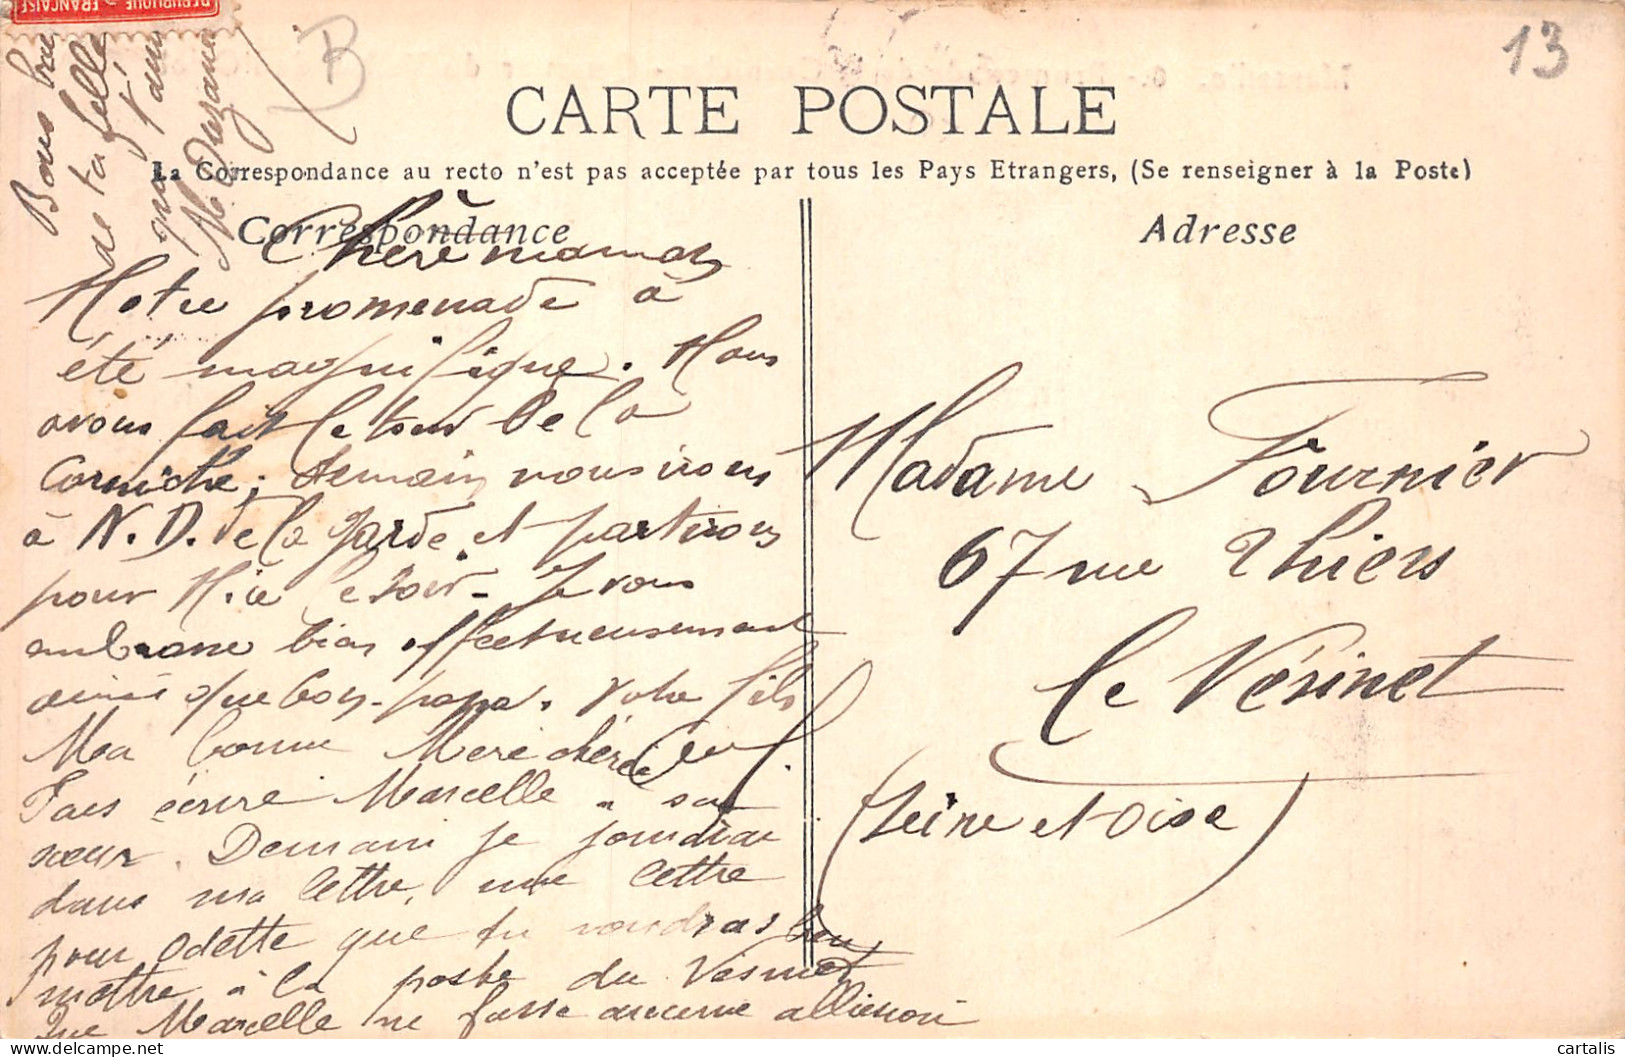 REPUBLIQUE FRANÇAISE
B
13
CARTE POSTALE
La Correspondance au recto n'est pas acceptée par tous les Pays Etrangers, (Se renseigner à la Poste)
Correspondance
Adresse
Chère maman
Notre promenade a
été magnifique. Nous
avons fait le tour de la
Corniche; demain nous irons
à N.D. de la garde et partirons
pour Nice le soir - Je vous
embrasse bien affectueusement
ainsi que bon-papa. Votre fils
Ma bonne Mère chérie
Fais écrire Marcelle à sa
sœur. Demain je joindrai
dans ma lettre, une lettre
pour Odette que tu voudras bien
mettre à la poste du Vésinet
Que Marcelle ne fasse aucune allusion
Bons
de ta fille
M Suzanne
Madame Fournier
67 rue Thiers
Le Vésinet
(Seine et Oise)
cartalis